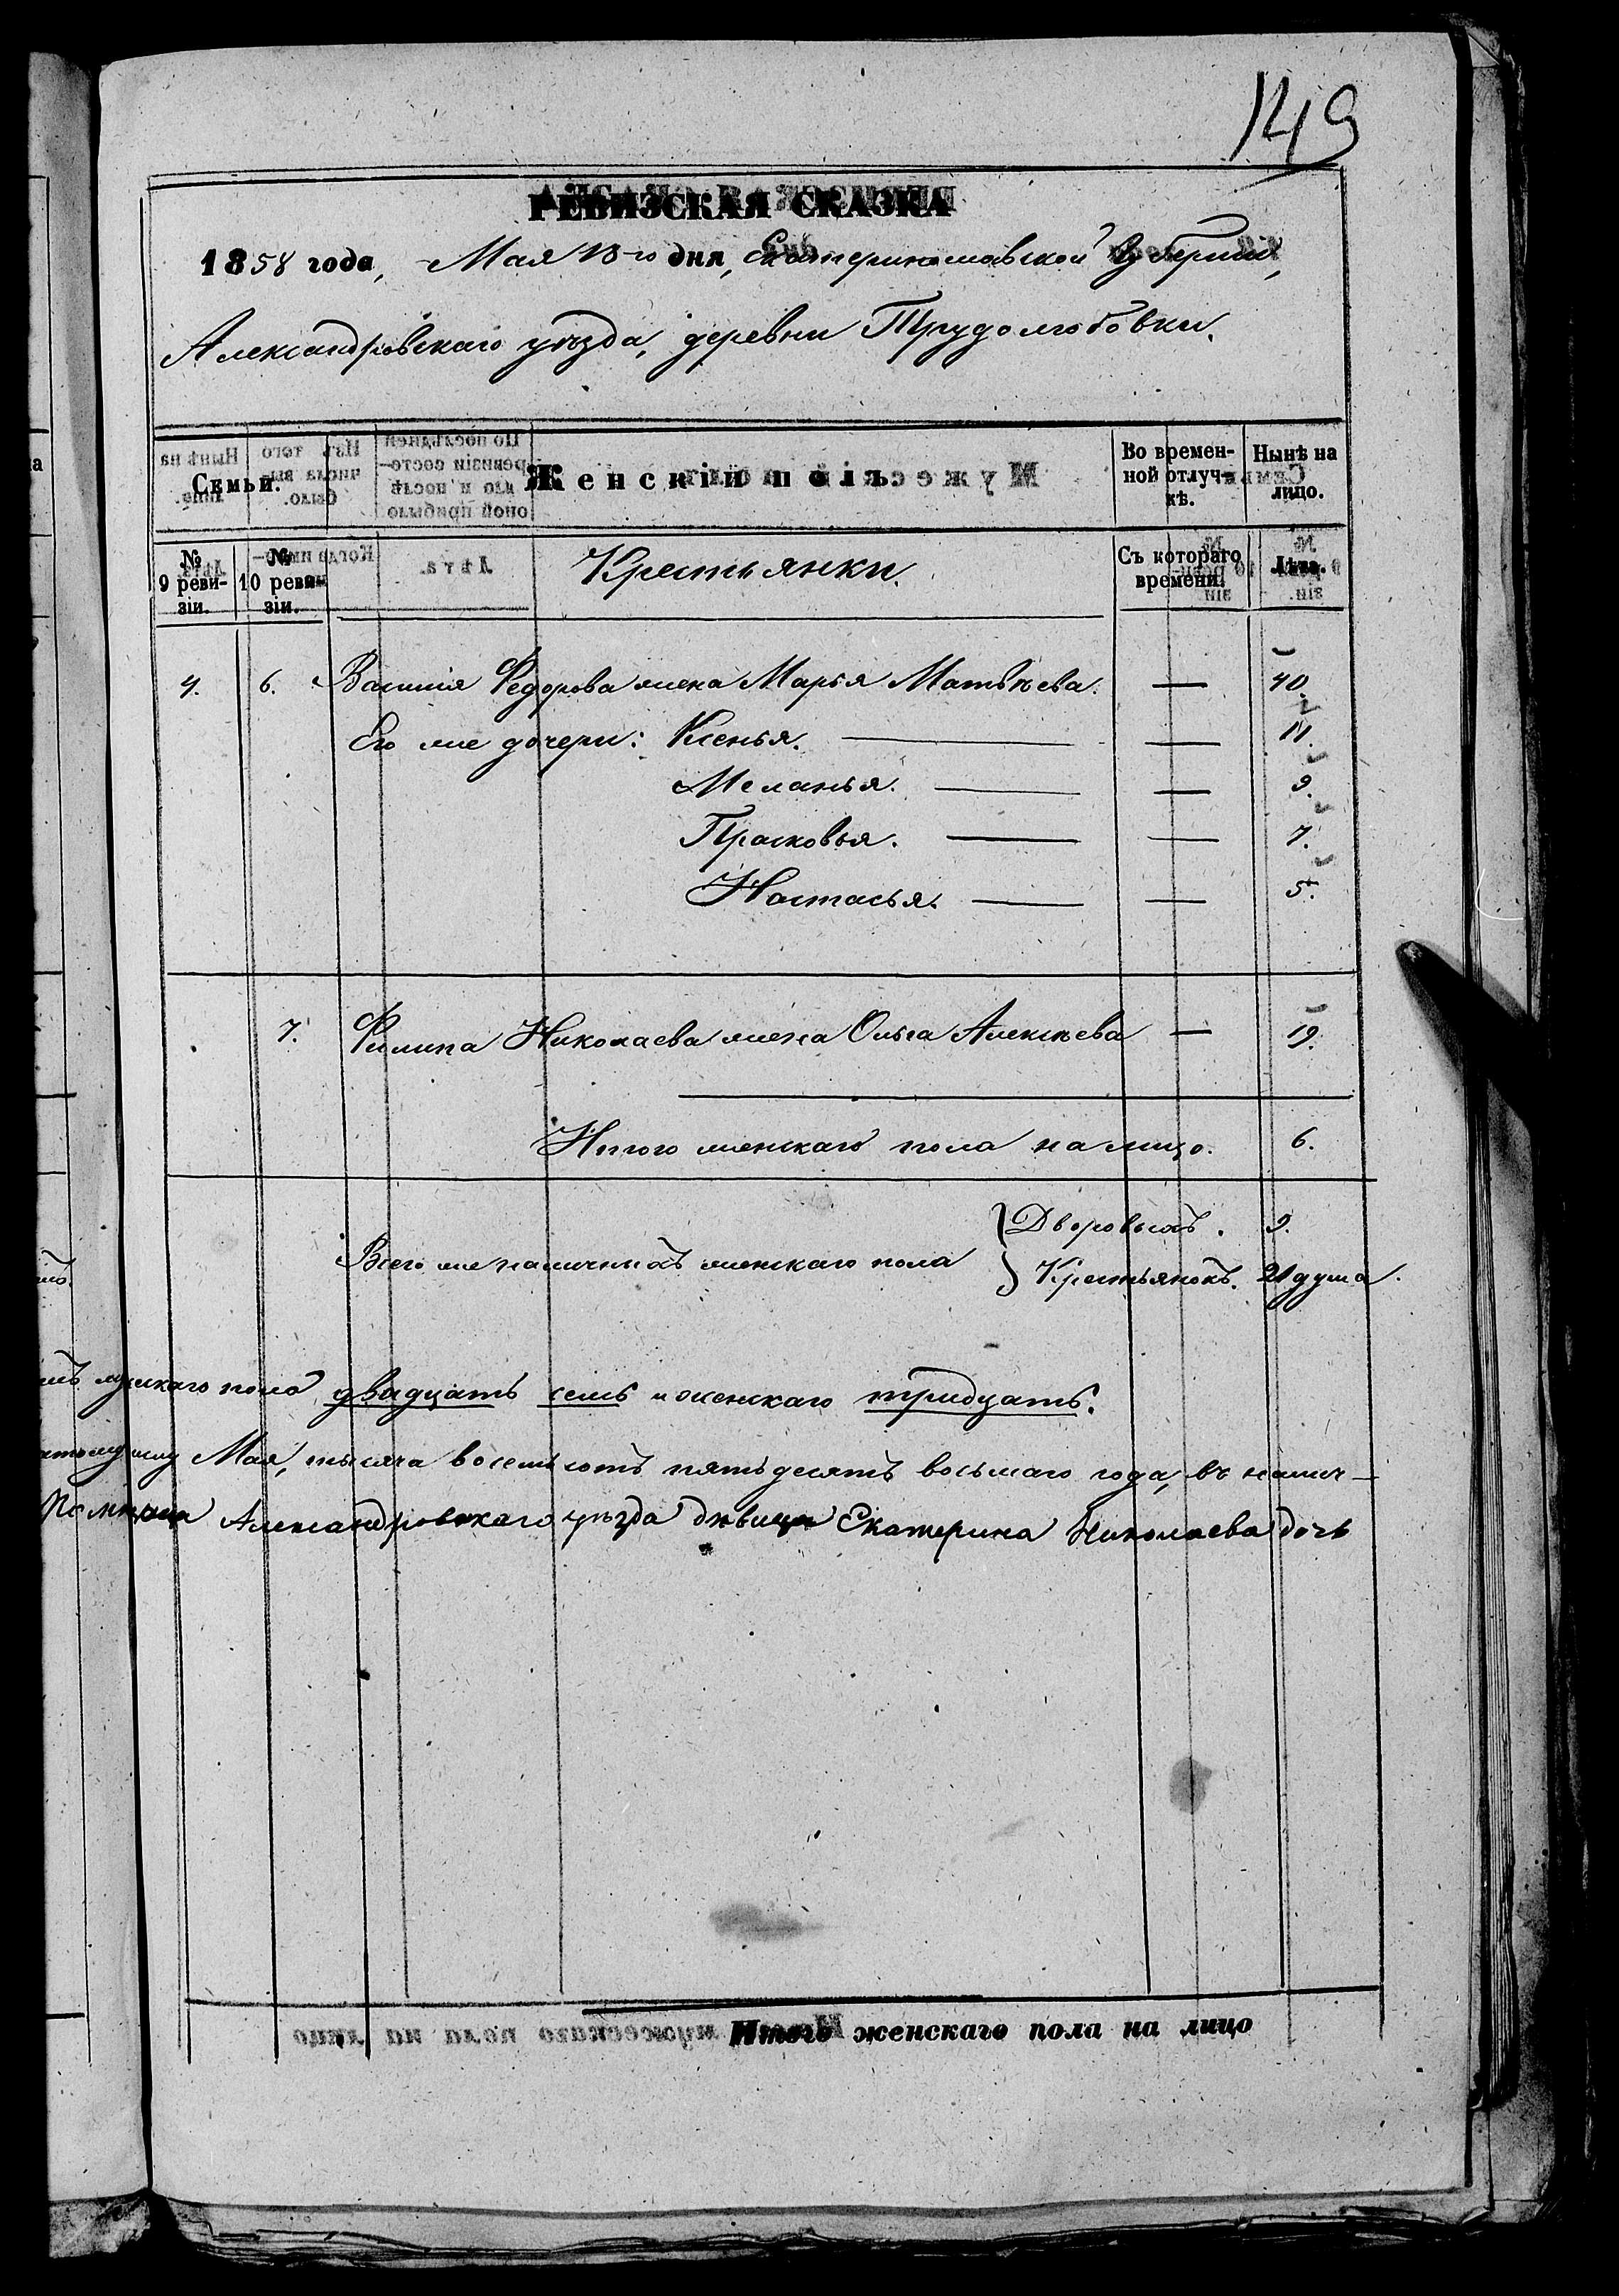 149
РЕВИЗСКАЯ СКАЗКА
1858 года, Мая 13го дня, Екатеринославской Губерніи,
Александровскаго уѣзда, деревни Трудолюбовки.
Семьи. Женскій полъ Во времен- Нынѣ на
ной отлуч- лицо.
кѣ.
№ № Крестьянки. Съ котораго Лѣта.
9 реви- 10 реви- времени.
зіи. зіи.
4. 6. Василія Федорова жена Марья Матвѣева. — 40.
Его же дочери: Ксенья. — — 11.
Меланья. — — 9.
Прасковья. — — 7.
Настасья. — — 5.
7. Филипа Николаева жена Ольга Алексѣева — 19.
Итого женскаго пола на лицо. 6.
Дворовыхъ. 9.
Всего же наличныхъ женскаго пола
Крестьянокъ. 21 душа.
мужскаго пола двадцать семь и женскаго тридцать.
Мая, тысяча восемьсотъ пятьдесятъ восьмаго года, въ налич-
Александровскаго уѣзда дѣвица Екатерина Николаева дочь
Итого женскаго пола на лицо